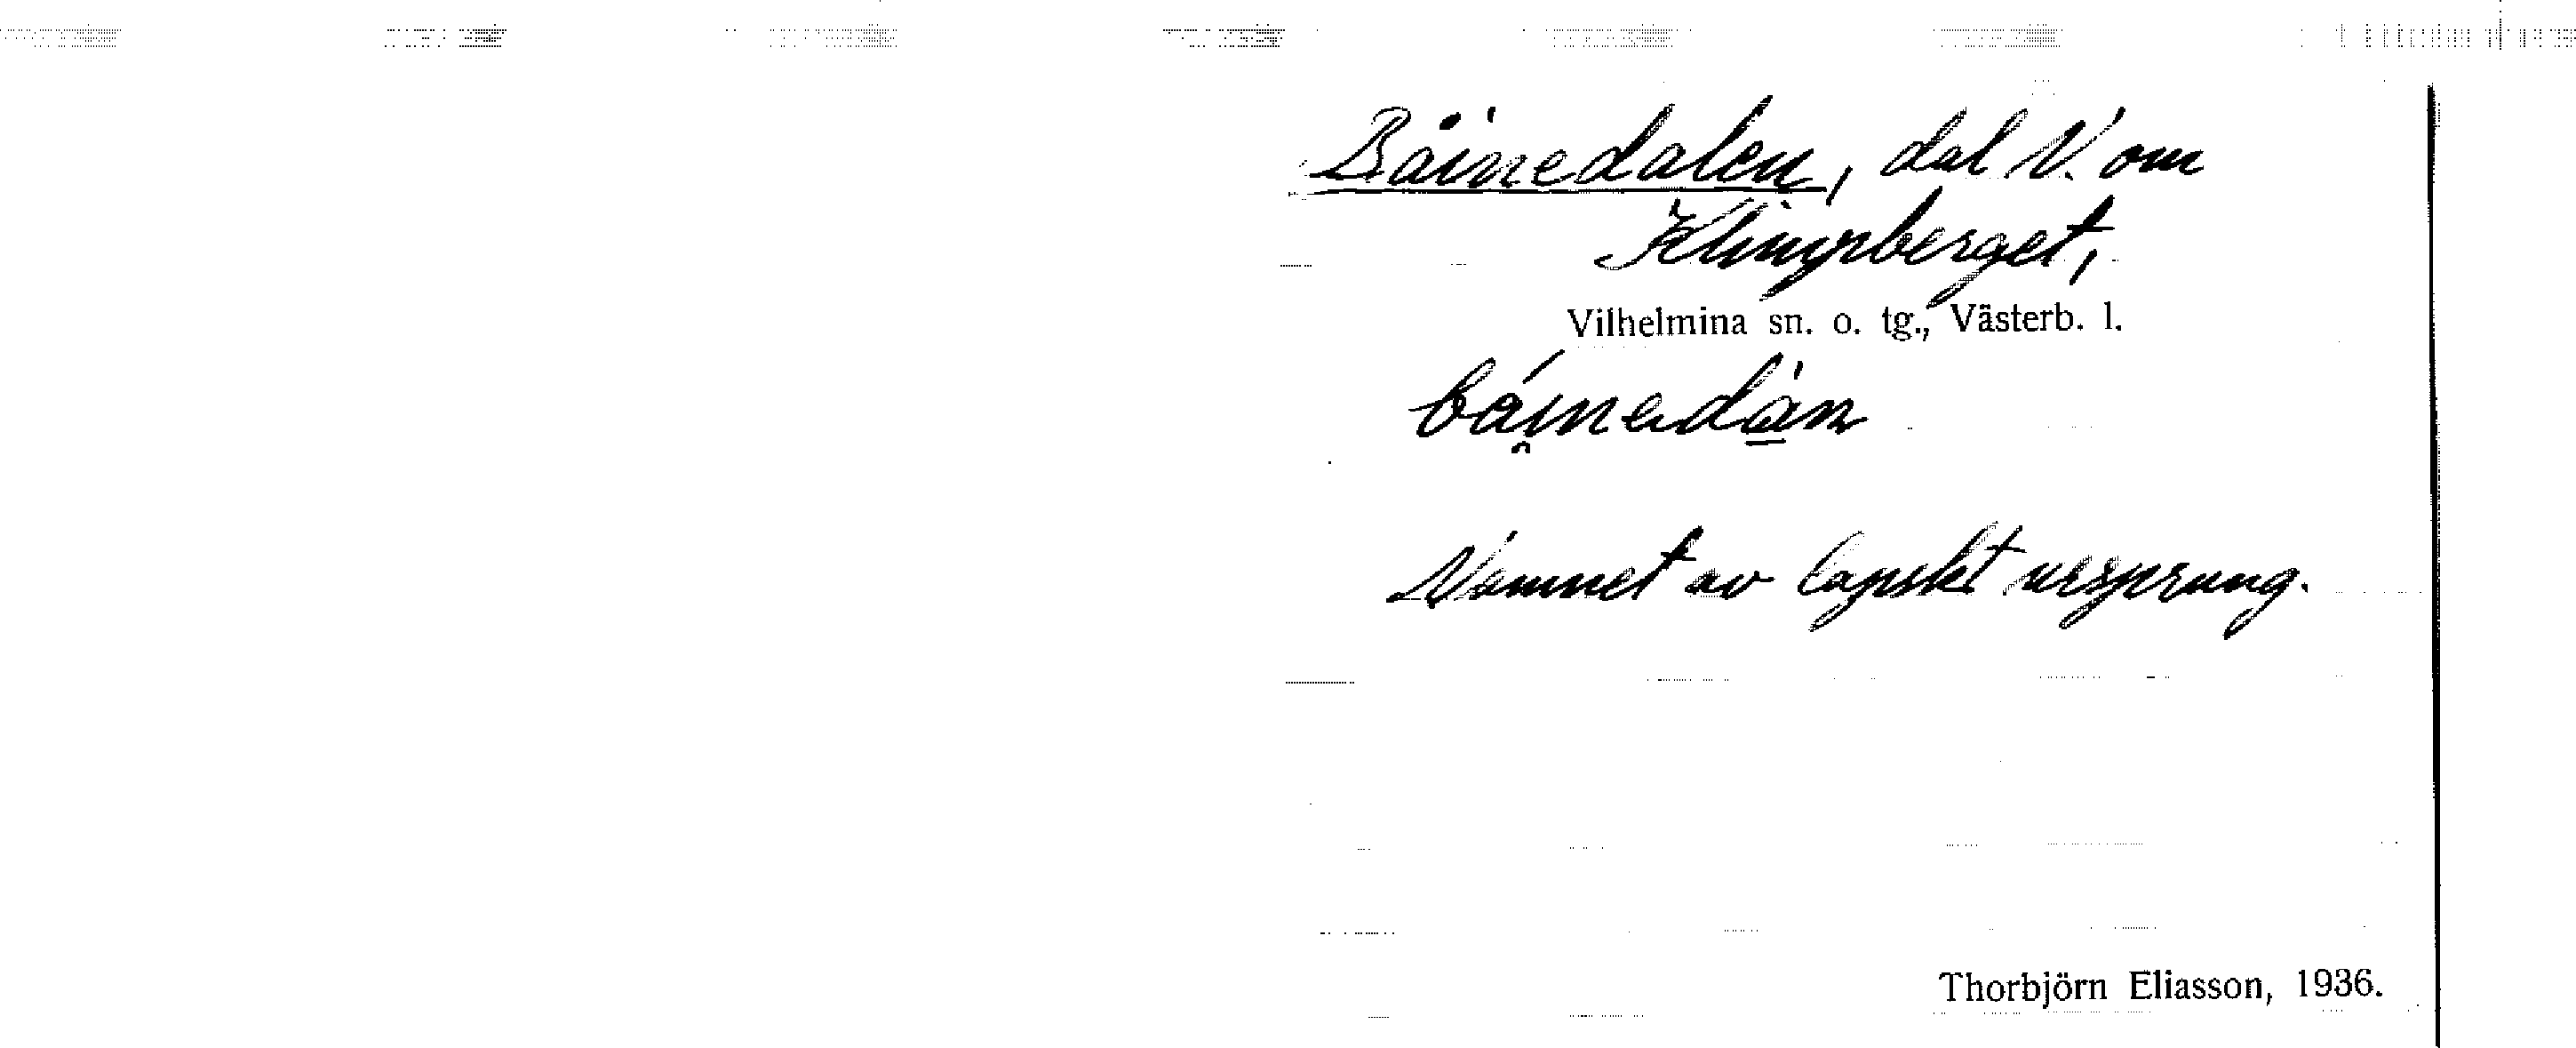 Båinedalen, dal V. om
Klimpberget,
Vilhelmina sn. o. tg., Västerb. l.
Namnet av lapskt ursprung.
Thorbjörn Eliasson, 1936.